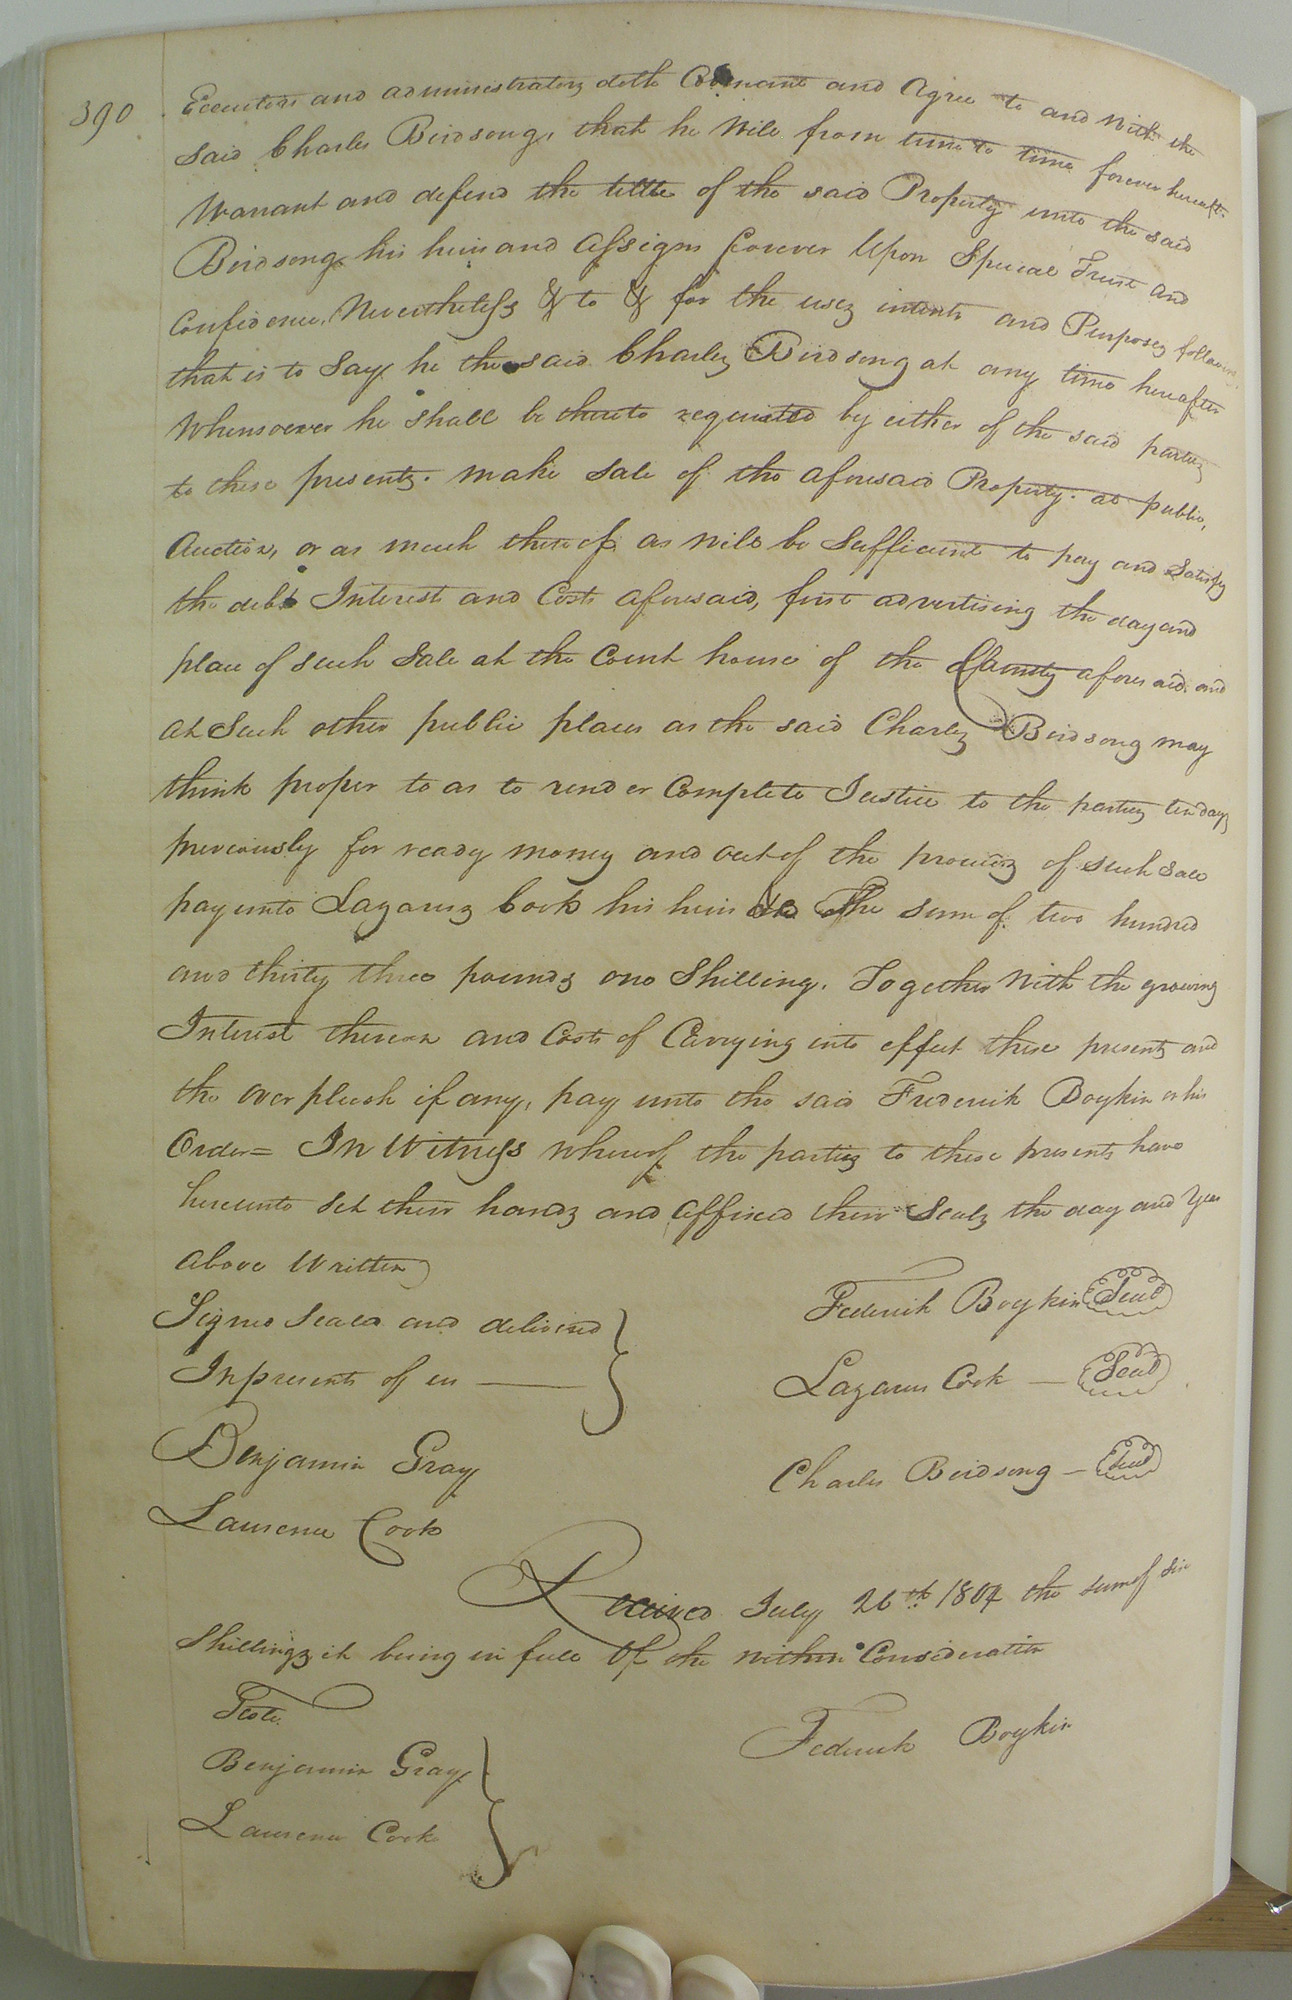 390
Executors and administrators doth Covenant and Agree to and with the
said Charles Birdsong, that he will from time to time forever hereaft.
Warrant and defend the tittle of the said Property unto the said
Birdsong his heirs and assigns forever Upon Special Trust and
Confidence. Nevertheless & to & for the uses intents and Purposes following,
that is to Say, he the said Charles Birdsong at any time hereafter
Whensoever he shall be thereto required by either of the said parties
to these presents. make sale of the aforesaid Property. at public,
Auction, or as much thereof as will be Sufficient to pay and Satisfy
the debt Interest and Costs aforesaid, first advertising the day and
place of such Sale at the Court house of the County aforesaid. and
at Such other public places as the said Charles Birdsong may
think proper to as to render Complete Justice to the parties ten days
previously for ready money and out of the proceeds of such sale
pay unto Lazarus Cook his heirs &c The sum of two hundred
and thirty three pounds one Shilling. Together With the growing
Interest thereon and Costs of Carrying into effect these presents and
the over plush if any, pay unto the said Frederick Boykin or his
Order= In Witness whereof the parties to these presents have
hereunto set their hands and affixed their Seals the day and Year
above Written
Signed Sealed and delivered
In presents of us
Federick Boykin Seal
Lazarus Cook — Seal
Charles Birdsong — Seal
Benjamin Gray
Laurence Cook
Received July 26th 1804 the sum of six
Shillings it being in full Of the within Consideration
Teste.
Benjamin Gray
Laurence Cook
Federick Boykin